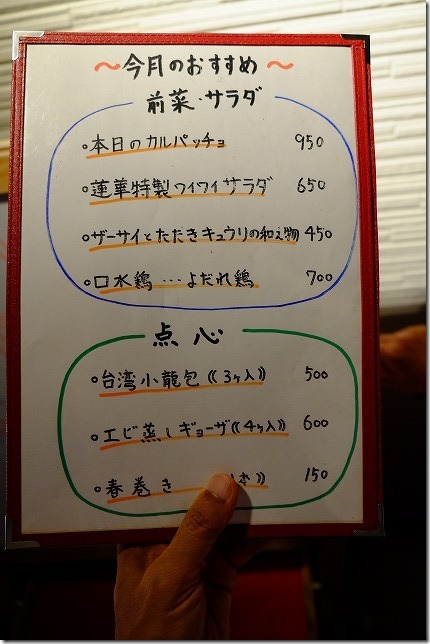 ～今月のおすすめ～
前菜・サラダ
・本日のカルパッチョ 950
・蓮華特製ワイワイサラダ 650
・ザーサイとたたきキュウリの和え物 450
・口水鶏…よだれ鶏 700
点心
・台湾小龍包《3ヶ入》 500
・エビ蒸しギョーザ《4ヶ入》 600
・春巻き 本》 150